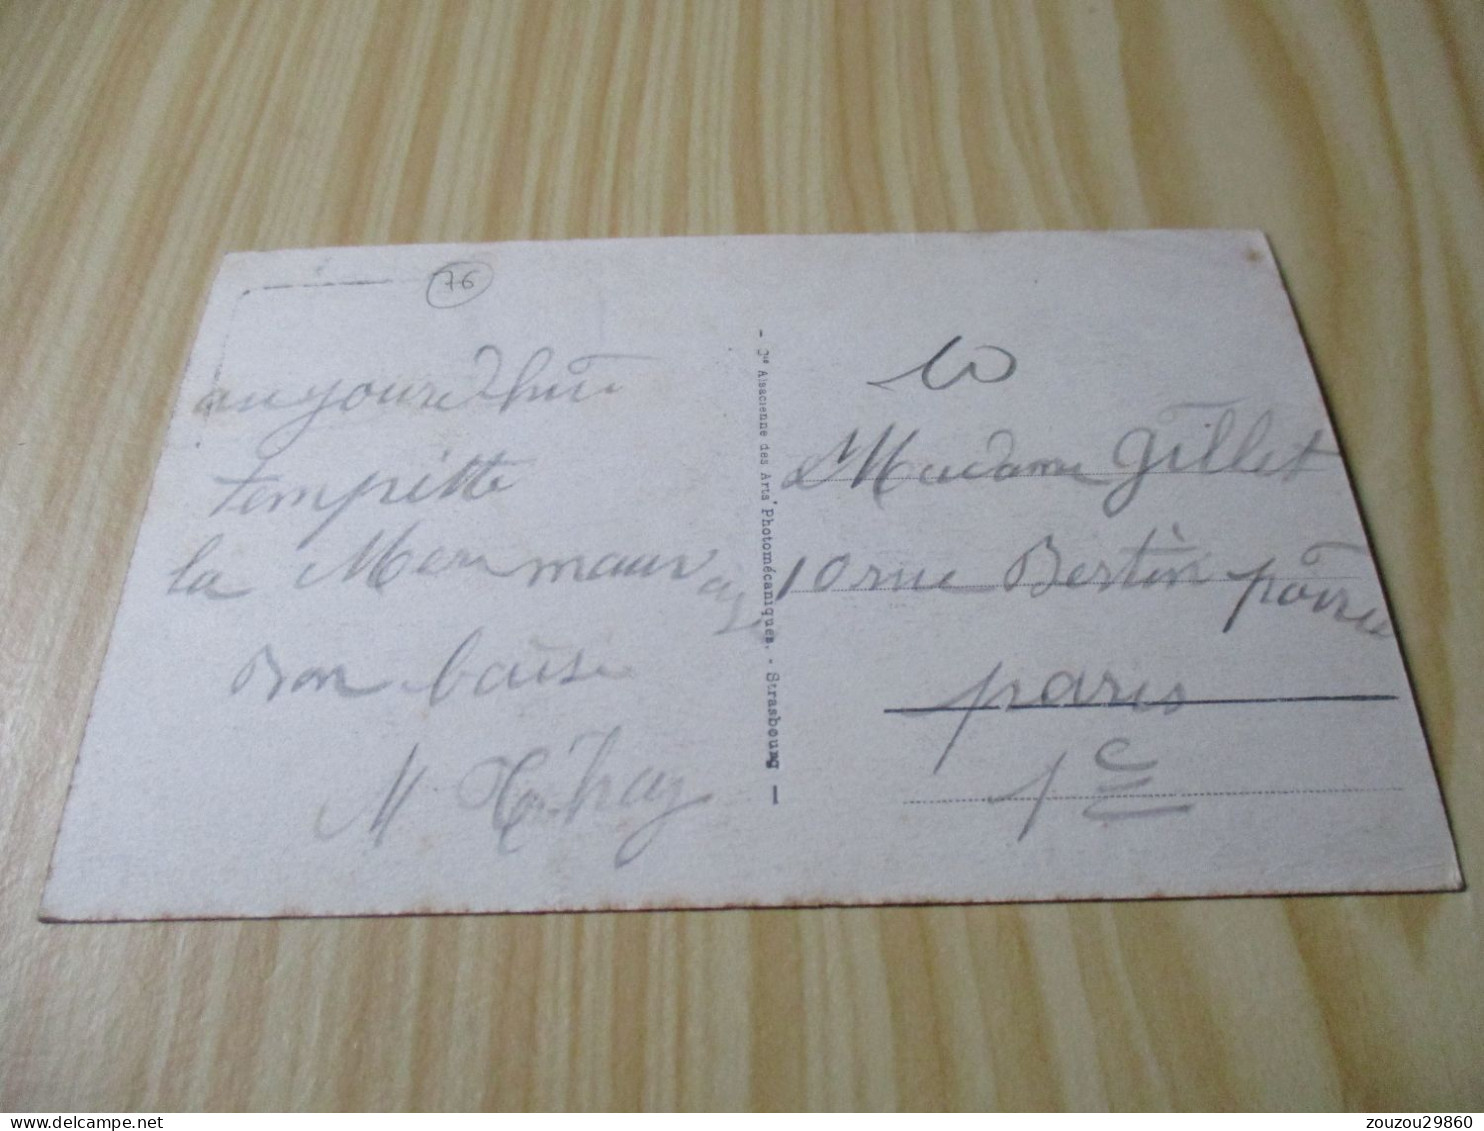 76
aujoure d'hui
tempitte
la Mer mauv
Bon baise
M
- Cie Alsacienne des Arts Photomécaniques. - Strasbourg -
10
Madame Gillet
10 rue Bertin poiree
paris
1e
zouzou29860